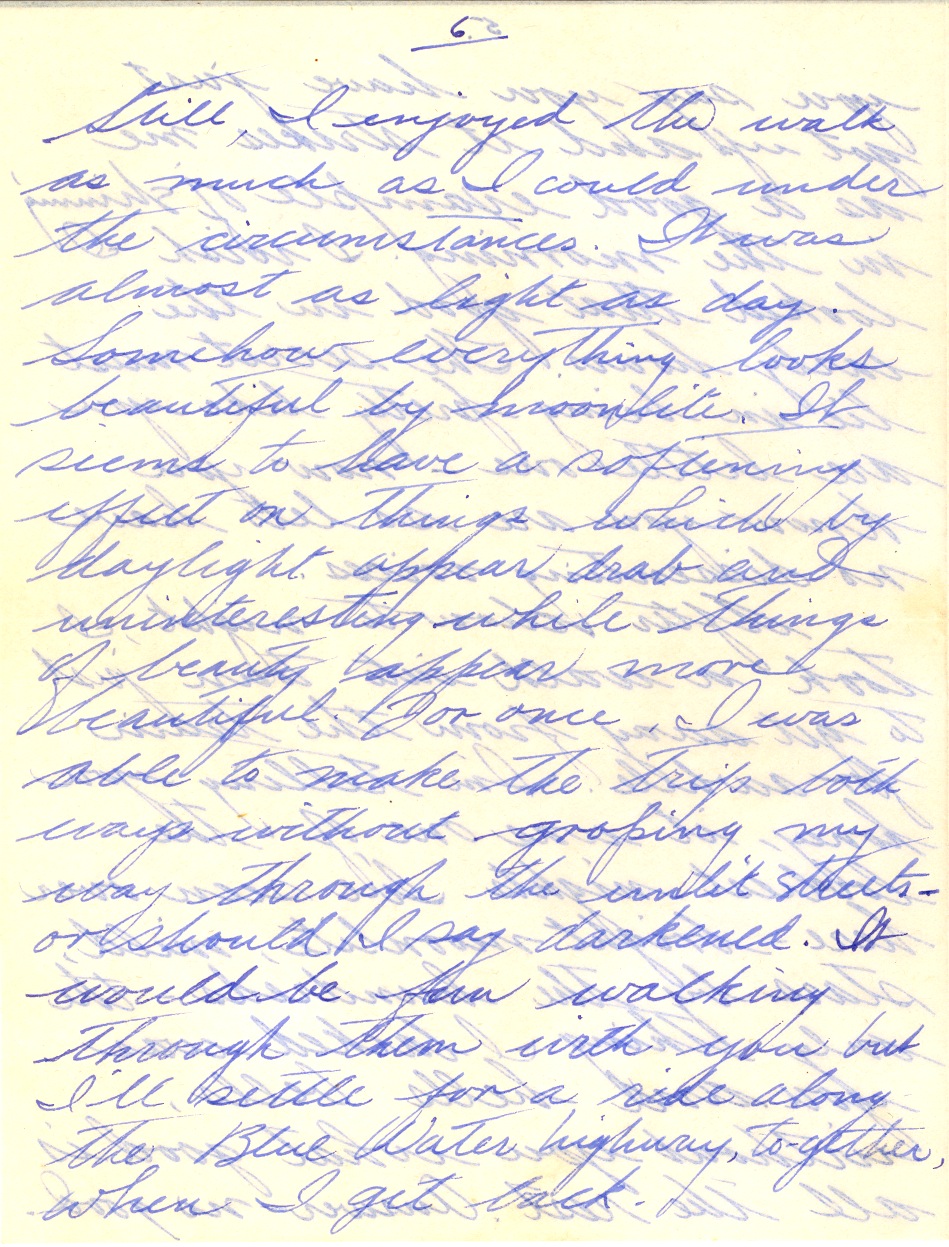 6.
Still, I enjoyed the walk
as much as I could under
the circumstances. It was
almost as light as day.
Somehow, everything looks
beautiful by moonlite. It
seems to have a softening
effect on things which by
daylight appear drab and
uninteresting while things
of beauty appear more
beautiful. For once, I was
able to make the trip both
ways without groping my
way through the unlit streets -
or should I say darkened. It
would be fun walking
through them with you but
I'll settle for a ride along
the Blue Water highway, together,
when I get back.